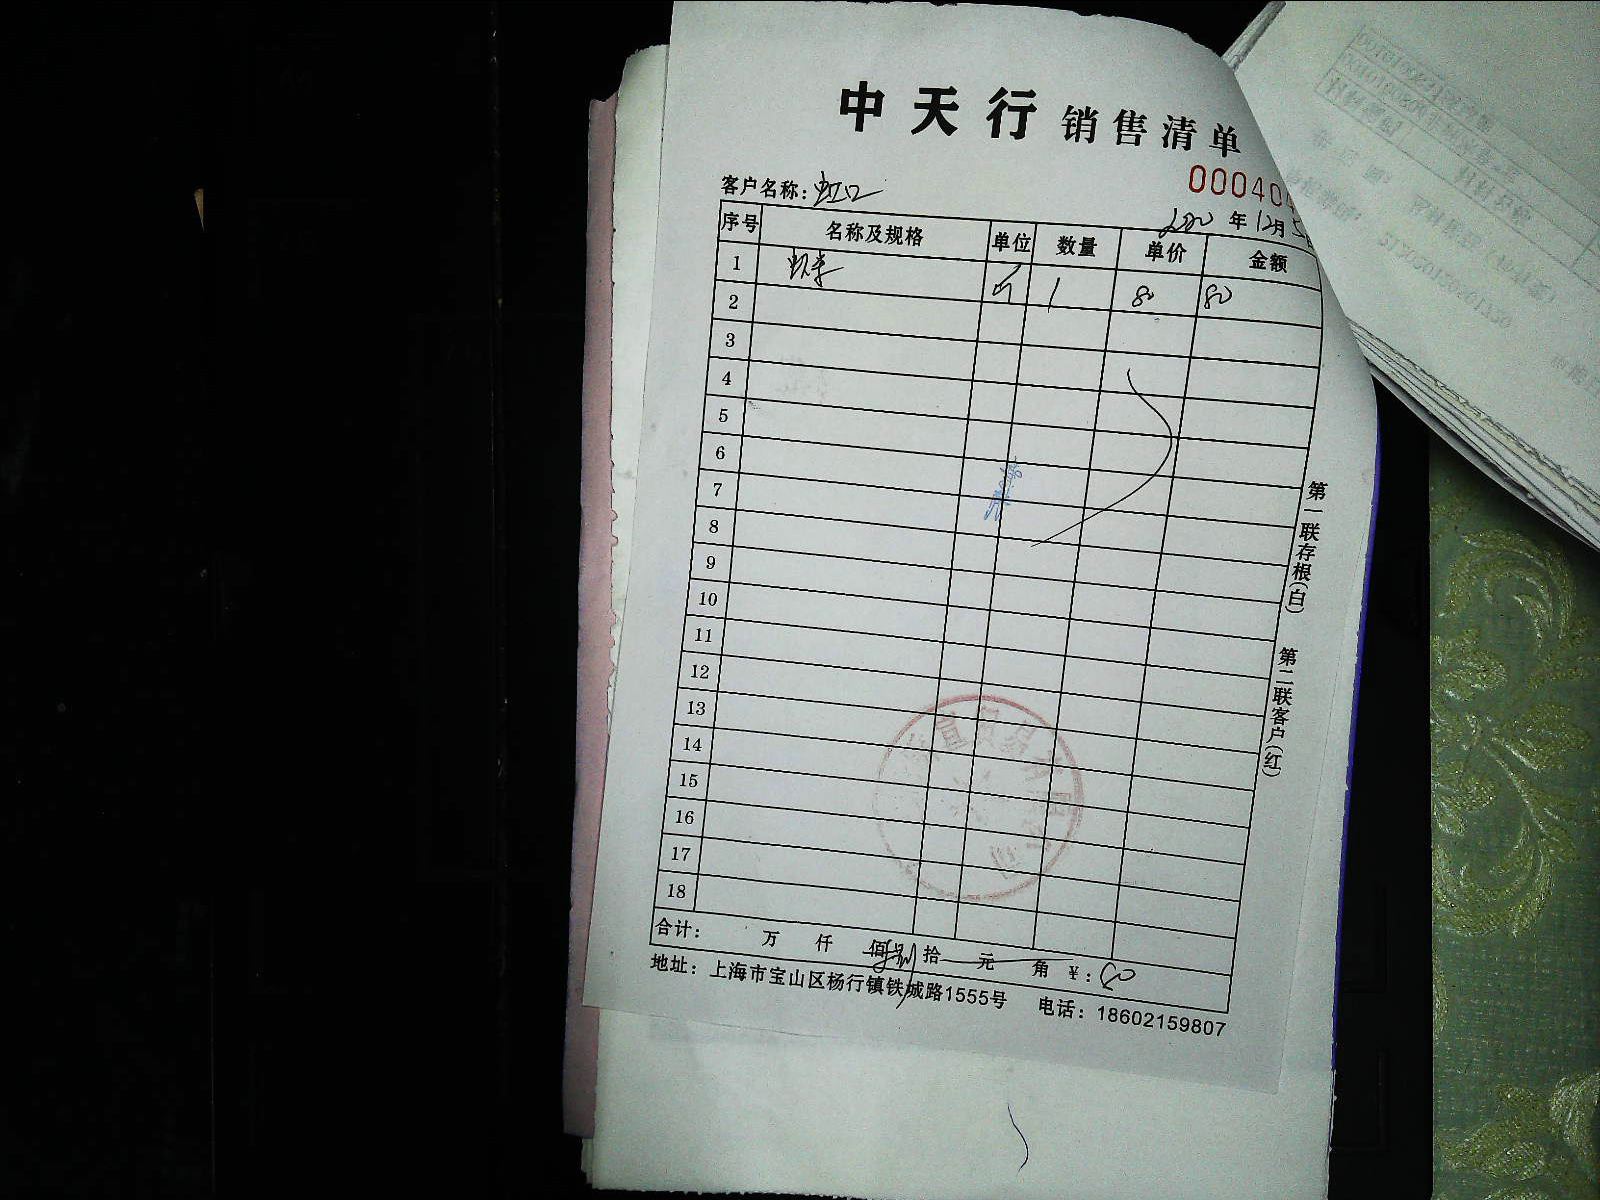 中天行 销售清单
00040
客户名称：虹口
年12月5日
序号 名称及规格 单位 数量 单价 金额
1 1 80 80
2
3
4
5
6
7
8
9
10
11
12
13
14
15
16
17
18
合计： 万 仟 佰捌拾 元 角 ¥：80
地址：上海市宝山区杨行镇铁城路1555号 电话：18602159807
第一联存根(白) 第二联客户(红)